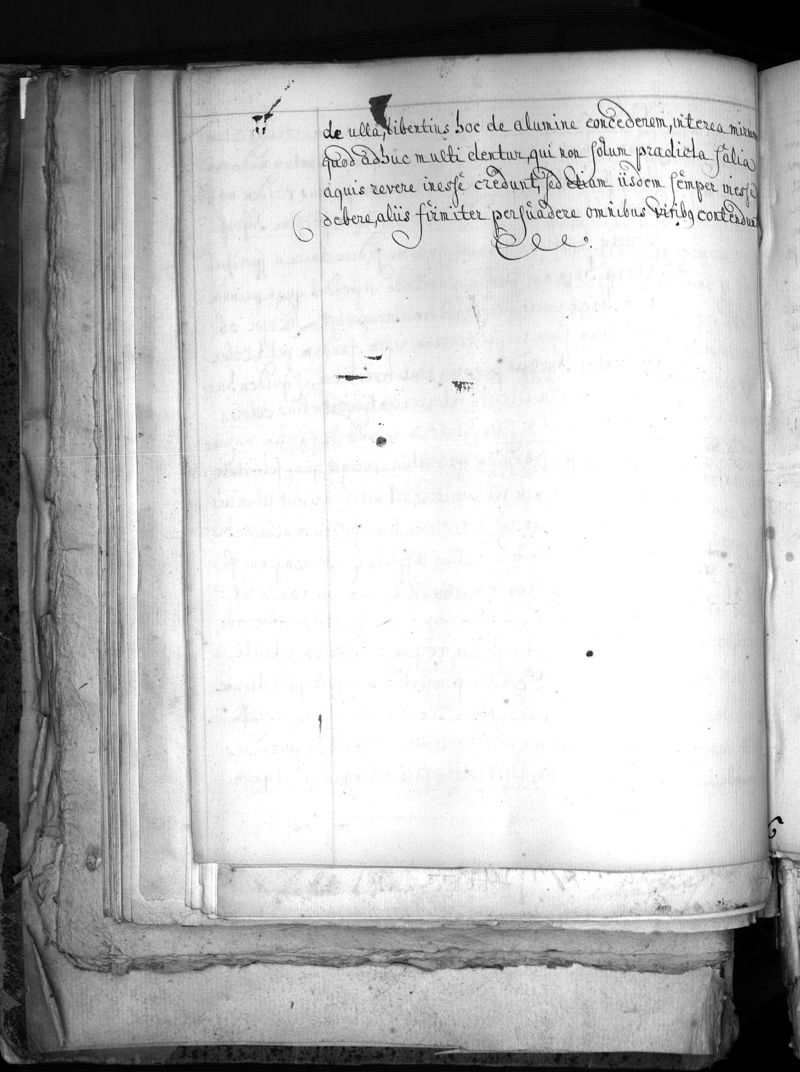 de ulla, libentius hoc de alumine concederem, interea mirum
quod adhuc multi dentur, qui non solum prædicta salia
aquis revere inesse credunt, sed etiam iisdem semper inesse
debere, aliis firmiter persuadere omnibus viribq contendunt